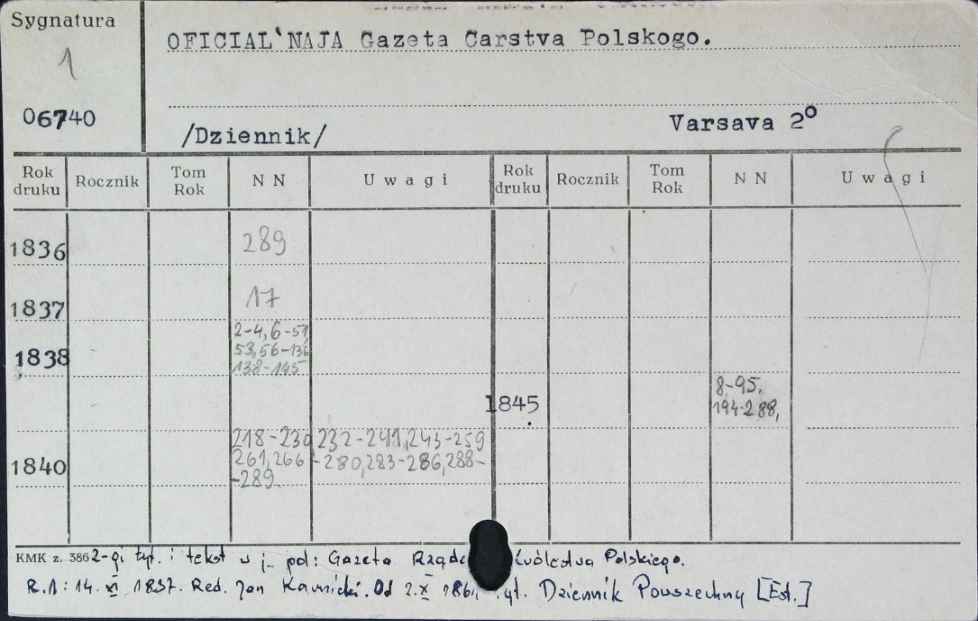 Sygnatura
OFICIAL'NAJA Gazeta Carstva Polskogo.
1
06740
/Dziennik/ Varsava 2°
Rok druku Rocznik Tom Rok N N Uwagi Rok druku Rocznik Tom Rok N N Uwagi
1836 289
1837 17
2-4, 6-51
1838 53, 56-136
138-145
8-95.
1845 194-288,
218-230 232-241, 243-259
1840 261, 266 -280, 283-286, 288-
-289.
KMK z. 386 2-gi tyt. i tekst w j. pol: Gazeta Polskiego.
R.1: 14. 1837. Red. Jan Od 2.X Dziennik Powszechny [Est.]